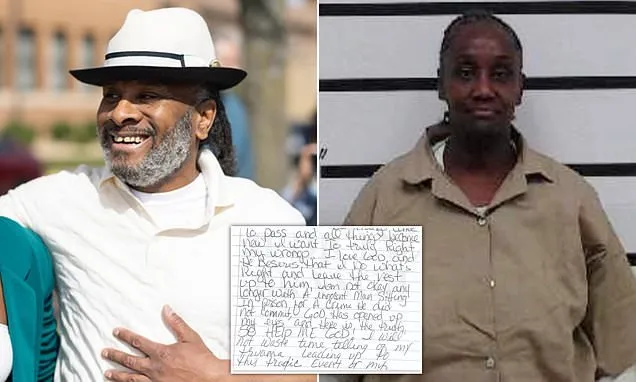 to pass and all things become
new I want to truly Right
my wrongs. I love God, and
He Desires that I Do what's
Right and leave the Rest
up to him, I am not okay any
longer with A innocent Man Sitting
In prison for A Crime he did
not commit, God Has opened up
my eyes and here is the truth,
SO HELP ME GOD! I will
not waste time telling of my
trauma leading up to
this tragic Event or my